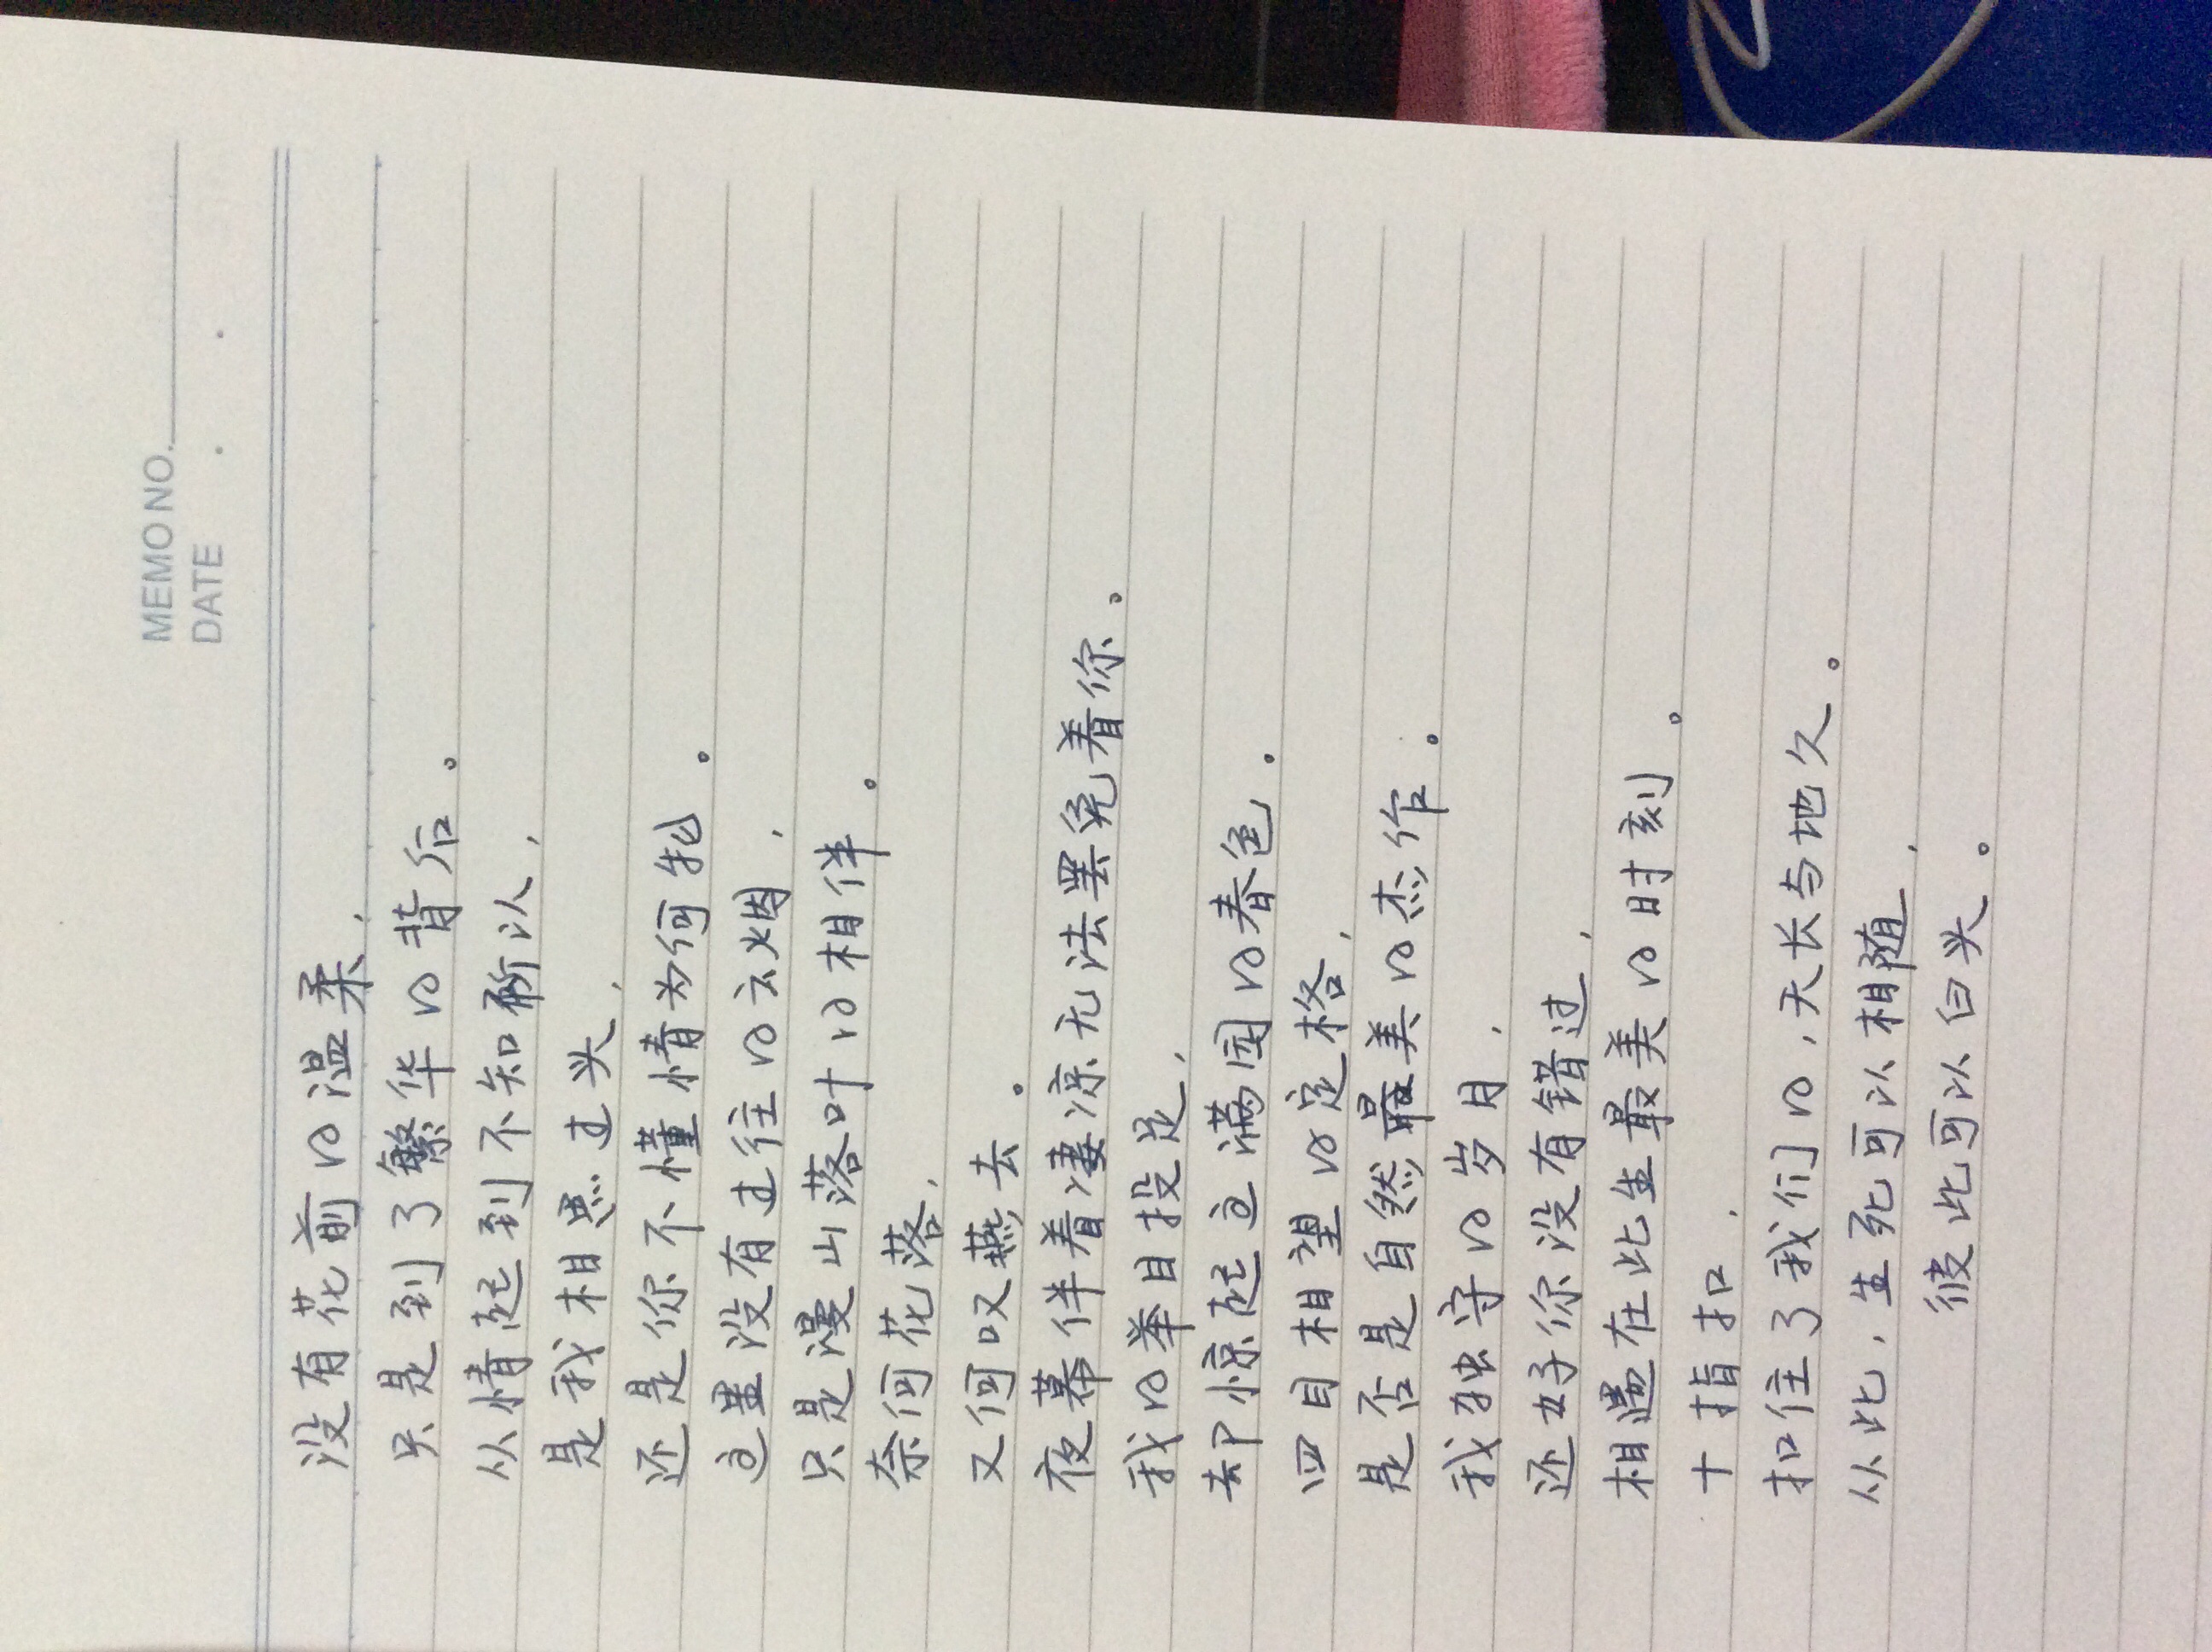 MEMO NO.
DATE . .
没有花前的温柔,
只是到了繁华的背后。
从情起到不知所以,
是我相思过头,
还是你不懂情为何物。
这里没有过往的云烟,
只是漫山落叶的相伴。
奈何花落,
又何叹燕去。
夜幕伴着凄凉无法罢免着你。
我的举目投足,
却惊起这满园的春色.
四目相望的定格,
是否是自然最美的杰作。
我独守的岁月,
还好你没有错过,
相遇在此生最美的时刻。
十指扣,
扣住了我们的,天长与地久。
从此,生死可以相随,
彼此可以白头。